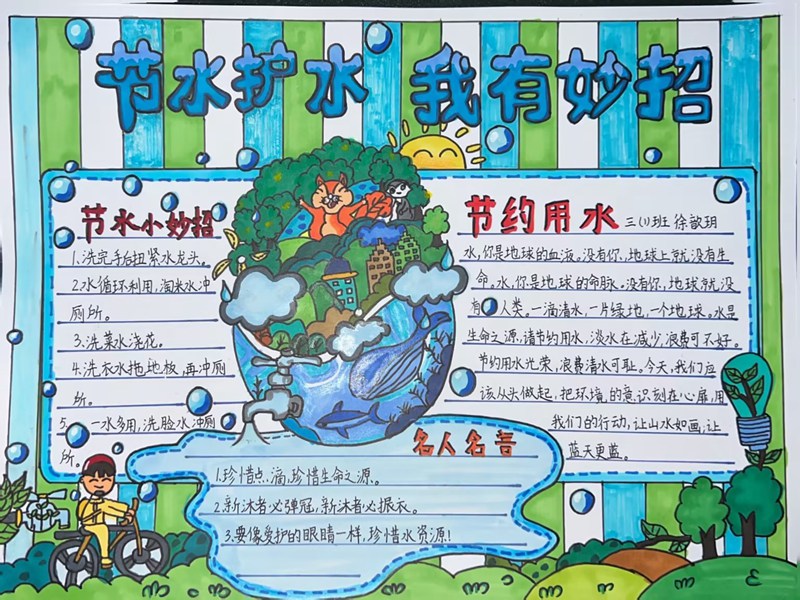 节水护水 我有妙招
节水小妙招
1.洗完手后扭紧水龙头。
2.水循环利用,淘米水冲
厕所。
3.洗菜水浇花。
4.洗衣水拖地板,再冲厕
所。
5.一水多用,洗脸水冲厕
所。
节约用水 三(1)班 徐歆玥
水,你是地球的血液。没有你,地球上就没有生
命。水,你是地球的命脉。没有你,地球就没
有人类。一滴清水,一片绿地,一个地球。水是
生命之源,请节约用水,淡水在减少,浪费可不好。
节约用水光荣,浪费清水可耻。今天,我们应
该从头做起,把环境的意识刻在心扉,用
我们的行动,让山水如画,让
蓝天更蓝。
名人名言
1.珍惜点滴,珍惜生命之源。
2.新沐者必弹冠,新沐者必振衣。
3.要像爱护的眼睛一样,珍惜水资源!